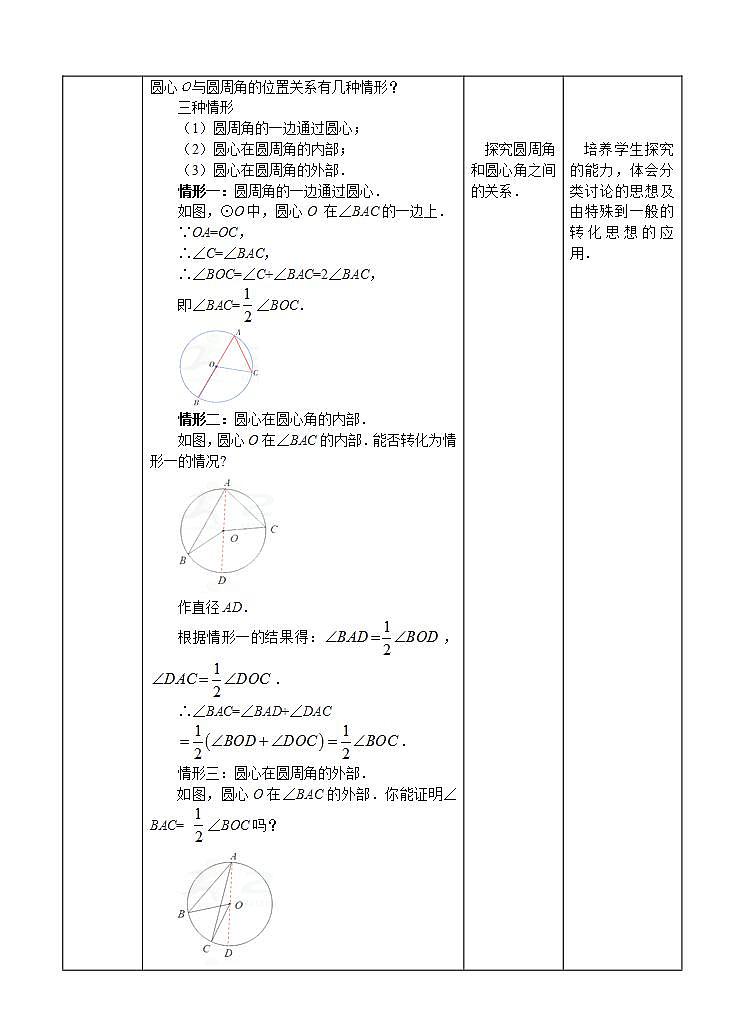 圆心 O 与圆周角的位置关系有几种情形？
三种情形
（1）圆周角的一边通过圆心；
（2）圆心在圆周角的内部；
（3）圆心在圆周角的外部．
情形一：圆周角的一边通过圆心．
如图，⊙O 中，圆心 O 在∠BAC 的一边上．
∵OA=OC，
∴∠C=∠BAC，
∴∠BOC=∠C+∠BAC=2∠BAC，
即∠BAC=1/2∠BOC．
A
O
C
B
情形二：圆心在圆心角的内部．
如图，圆心 O 在∠BAC 的内部．能否转化为情
形一的情况？
A
C
O
B
D
作直径 AD．
根据情形一的结果得：∠BAD=1/2∠BOD，
∠DAC=1/2∠DOC．
∴∠BAC=∠BAD+∠DAC
=1/2(∠BOD+∠DOC)=1/2∠BOC．
情形三：圆心在圆周角的外部．
如图，圆心 O 在∠BAC 的外部．你能证明∠
BAC= 1/2∠BOC 吗？
A
O
B
C
D
探究圆周角
和圆心角之间
的关系．
培养学生探究
的能力，体会分
类讨论的思想及
由特殊到一般的
转化思想的应
用．